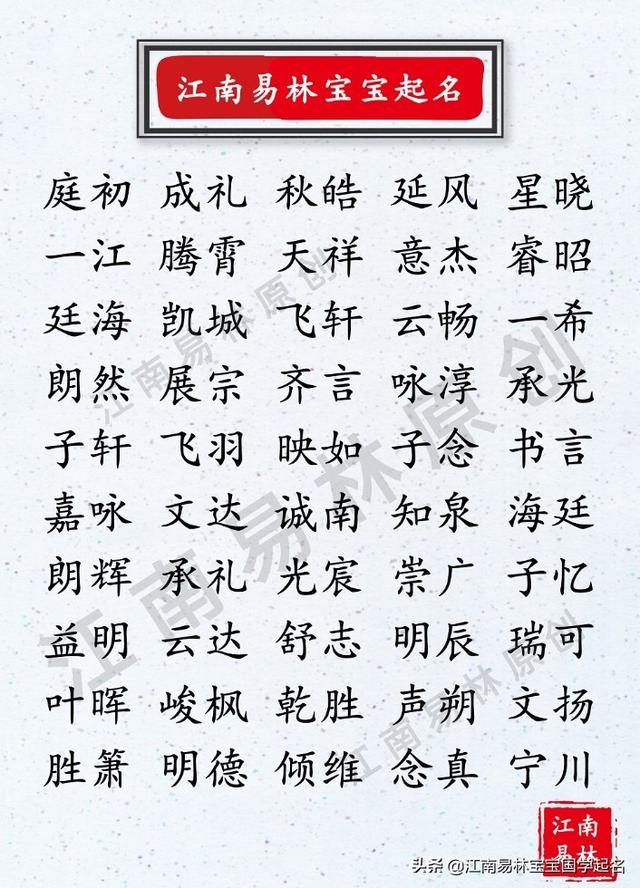 江南易林宝宝起名
庭初 成礼 秋皓 延风 星晓
一江 腾霄 天祥 意杰 睿昭
廷海 凯城 飞轩 云畅 一希
朗然 展宗 齐言 咏淳 承光
子轩 飞羽 映如 子念 书言
嘉咏 文达 诚南 知泉 海廷
朗辉 承礼 光宸 崇广 子忆
益明 云达 舒志 明辰 瑞可
叶晖 峻枫 乾胜 声朔 文扬
胜箫 明德 倾维 念真 宁川
江南易林原创
江南易林原创
江南易林原创
江南
易林
头条 @江南易林宝宝国学起名